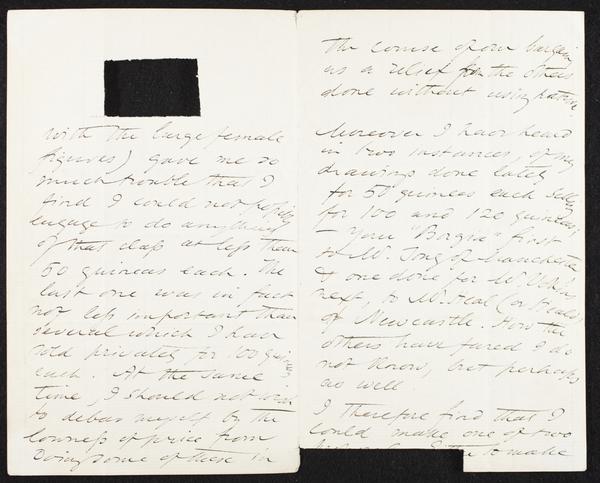 with the large female
figures) gave me so
much trouble that I
find I could not possibly
engage to do anything
of that class at less than
50 guineas each. The
last one was in fact
not less important than
several which I have
sold privately for 100 guineas
each. At the same
time, I should not wish
to debar myself by the
lowness of price from
doing some of these in
the course of our bargain
as a relief from the others
done without using nature.
Moreover I have heard
in two instances, of my
drawings done lately
for 50 guineas each selling
for 100 and 120 guineas;
– your "Borgia" first
to Mr. Tong of Manchester
& one done for Mr.
next, to Mr. Heal (or Steald)
of Newcastle. How the
others have fared I do
not know, but perhaps
as well.
I therefore find that I
could make one of two
to make